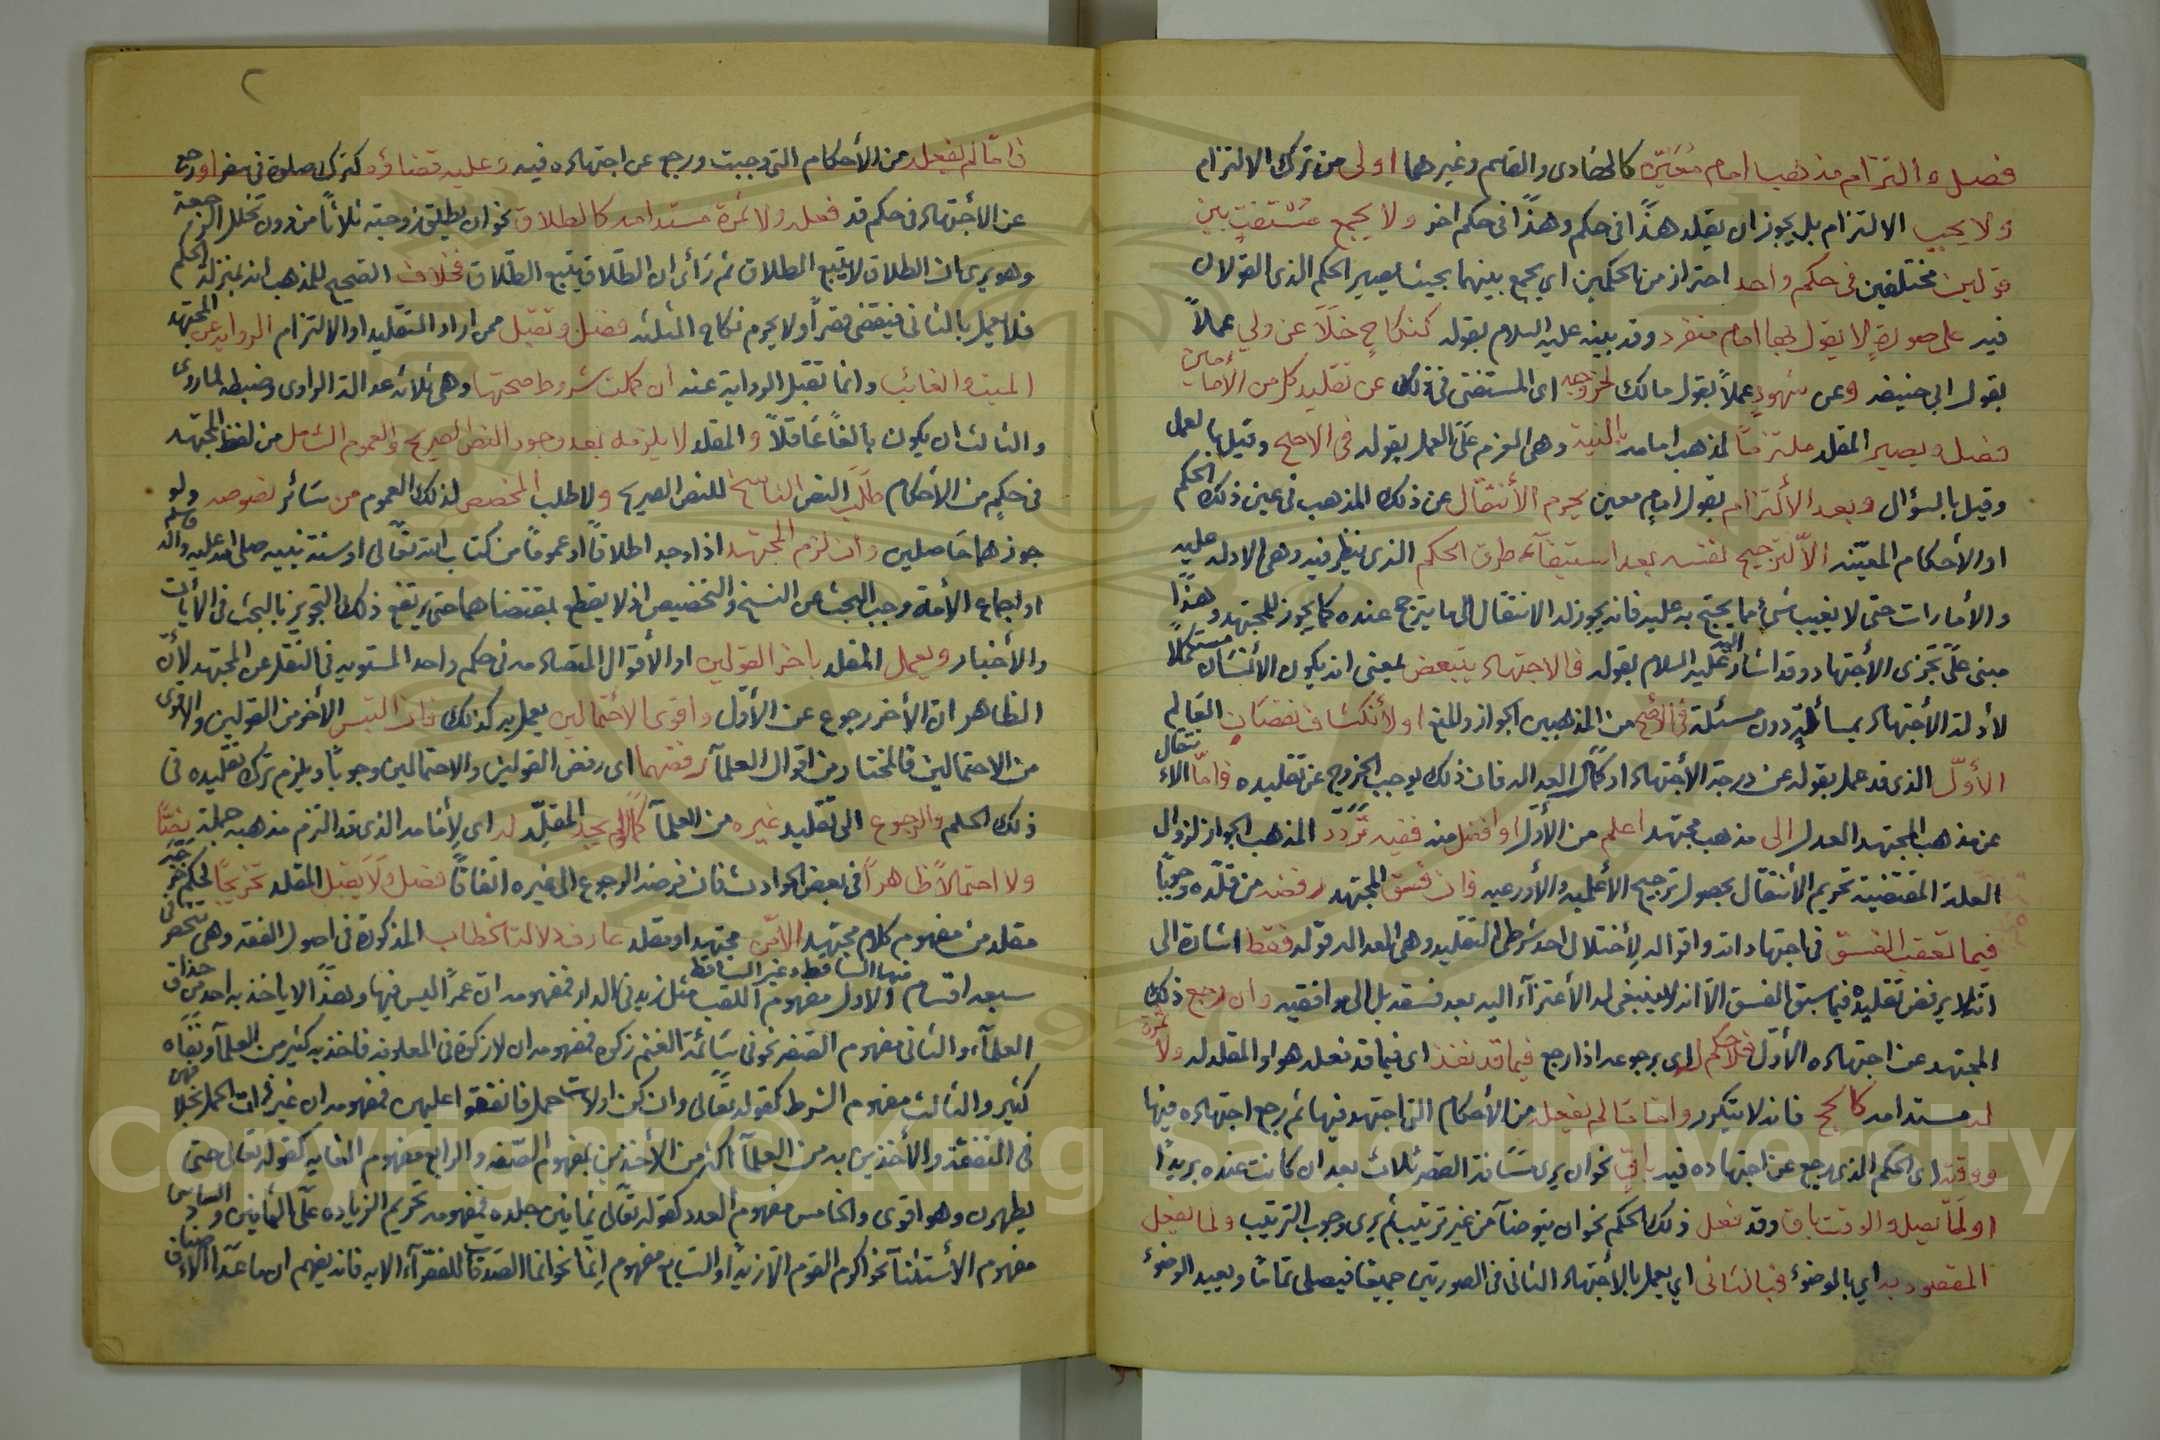 فصل والتزام مذهب امام معين كالهادي والقاسم وغيرهما اولى من ترك الالتزام
ولا يجب الالتزام بل يجوز ان يقلد هذا في حكم وهذا في حكم اخر ولا يجمع مستفتٍ بين
قولين مختلفين في حكم واحد احتراز من الحكمين اي يجمع بينهما بحيث يصير الحكم الذي القولان
فيه على صورةٍ لا يقول بها امام منفرد وقد بينه عليه السلام بقوله كنكاحٍ خلا عن ولي عملاً
بقول ابي حنيفه وعن شهودٍ عملاً بقول مالك لخروجه اى المستفتى في ذلك عن تقليد كل من الأمامين
فصل ويصير المقلد ملتزمًا لمذهب امامه بالنية وهى العزم على العمل بقوله في الاصح وقيل بالعمل
وقيل بالسؤال وبعد الألتزام بقول امام معين يحرم الأنتقال عن ذلك المذهب في عين ذلك الحكم
او الأحكام المعينه الا لترجيح نفسه بعد استيفآء طرق الحكم الذي ينظر فيه وهى الادله عليه
والأمارات حتى لا يغيب شئ مما يحتج به عليه فانه يجوز له الانتقال الى ما يترجح عنده كما يجوز للمجتهد وهذا
مبنى على تجزى الأجتهاد وقد اشار اليه عليه السلام بقوله فالاجتهاد يتبعض بمعنى انه يكون الأنسان مستكملاً
لأدلة الأجتهاد بمسألةٍ دون مسئلة في الأصح من المذهبين الجواز والمنع او لأنكشاف نقصان العالم
الأوّل الذى قد عمل بقوله عن درجة الأجتهاد او كمال العداله فان ذلك يوجب الخروج عن تقليده فامّا الانتقال
عن مذهب المجتهد العدل الى مذهب مجتهد اعلم من الأول او افضل منه ففيه تردد المذهب الجواز لزوال
العلة المقتضية تحريم الأنتقال بحصول ترجيح الأعلميه والأورعيه فان فسق المجتهد رفضه من قلده وجوباً
فيما تعقب الفسق في اجتهاداته واقواله لأختلال احد شرطى التقليد وهى العداله قوله فقط اشارة الى
انه لا يرفض تقليده فيما سبق الفسق الا انه لا ينبغى له الأعتزآء اليه بعد فسقه بل الى موافقيه وان رجع ذلك
المجتهد عن اجتهاده الأول فلا حكم له اى برجوعه اذا رجع فيما قد نفذ اى فيما قد فعله هو او المقلد له ولا ثمرة
له مستدامه كالحج فانه لا يتكرر واما ما لم يفعل من الأحكام التى اجتهد فيها ثم رجع اجتهاده فيها
ووقته اى الحكم الذى رجع عن اجتهاده فيه باقٍ نحو ان يرى مسافة القصر ثلاث بعد ان كانت عنده بريدًا
او لمّا يصل والوقت باق وقد فعل ذلك الحكم نحو ان يتوضأ من غير ترتيب ثم يرى وجوب الترتيب ولما يفعل
المقصود به اي بالوضوء فبالثانى اي يعمل بالأجتهاد الثانى في الصورتين جميعًا فيصلى تمامًا ويعيد الوضوء
٢
فامّا ما لم يفعل من الأحكام التى وجبت ورجع عن اجتهاده فيه وعليه قضاؤه كترك صلوة في سفر او رجع
عن الأجتهاد في حكم قد فعله ولا ثمرة مستدامه كالطلاق نحو ان يطلق زوجته ثلاثًا من دون تخلل الرجعة
وهو يرى ان الطلاق لا يتبع الطلاق ثم رأى ان الطلاق يتبع الطلاق فخلاف الصحيح للمذهب انه بمنزلة الحكم
فلا يعمل بالثانى فينقض ولا يحرم نكاح المثلثه فصل وتقبل ممن اراد التقليد او الالتزام الرواية عن المجتهد
الميت والغائب وانما تقبل الرواية عنه ان كملت شروط صحتها وهى ثلاثه عدالة الراوى وضبطه لما روى
والثالث ان يكون بالغاً عاقلاً والمقلد لا يلزمه بعد وجود النص الصريح والعموم الشامل من لفظ المجتهد
في حكم من الأحكام طلب النص الناسخ للنص الصريح ولا طلب المخصص لذلك العموم من سائر نصوصه ولو
جوزهما حاصلين وان لزم المجتهد اذا وجد اطلاقًا او عمومًا من كتاب الله تعالى او سنة نبيه صلى الله عليه واله وسلم
او اجماع الأمة وجب البحث عن النسخ والتخصيص اذ لا يقطع بمقتضاهما حتى يرتفع ذلك التجويز بالبحث في الأيات
والأخبار ويعمل المقلد باخر القولين او الأقوال المتضاده في حكم واحد المستويه في النقل عن المجتهد لأن
الظاهر ان الأخر رجوع عن الأول واقوى الأحتمالين يعمل به كذلك فان التبس الأخر من القولين والأقوى
من الاحتمالين فالمختار من اقوال العلمآ رفضهما اى رفض القولين والاحتمالين وجوباً ويلزم ترك تقليده في
ذلك الحكم والرجوع الى تقليد غيره من العلمآ كما لو لم يجد المقلد له اى لأمامه الذى قد التزم مذهبه جملة نصًا
ولا احتمالاً ظاهراً في بعض الحوادث فان فرضه الرجوع الى غيره اتفاقاً فصل ولا يقبل المقلد تخريجًا لحكم
مقلد من مفهوم كلام مجتهد الا من مجتهد او مقلد عارف دلالة الخطاب المذكورة في اصول الفقه وهى تنحصر في
سبعة اقسام منها الساقط وغير الساقط والاول مفهوم اللقب مثل زيد في الدار فمفهومه ان عمراً ليس فيها وهذا الا ياخذ به احد من حذاق
العلمآء والثانى مفهوم الصفه نحو في سائمة الغنم زكوه فمفهومه ان لا زكوة في المعلوفه فاخذ به كثير من العلمآ ونفاه
كثير والثالث مفهوم الشرط كقوله تعالى وان كن اولات حمل فانفقوا عليهن فمفهومه ان غير ذوات الحمل بخلافهن
في المنفقة والأخذين به من العلمآ اكثر من الأخذين بمفهوم الصفه والرابع مفهوم الغايه كقوله تعالى حتى
يطهرن وهو اقوى والخامس مفهوم العدد كقوله تعالى ثمانين جلده فمفهومه تحريم الزياده على الثمانين والسادس
مفهوم الأستثنآ نحو اكرم القوم الا زيداً والسابع مفهوم انما نحو انما الصدقات للفقرآء الايه فانه يفهم ان ما عدا الأصناف